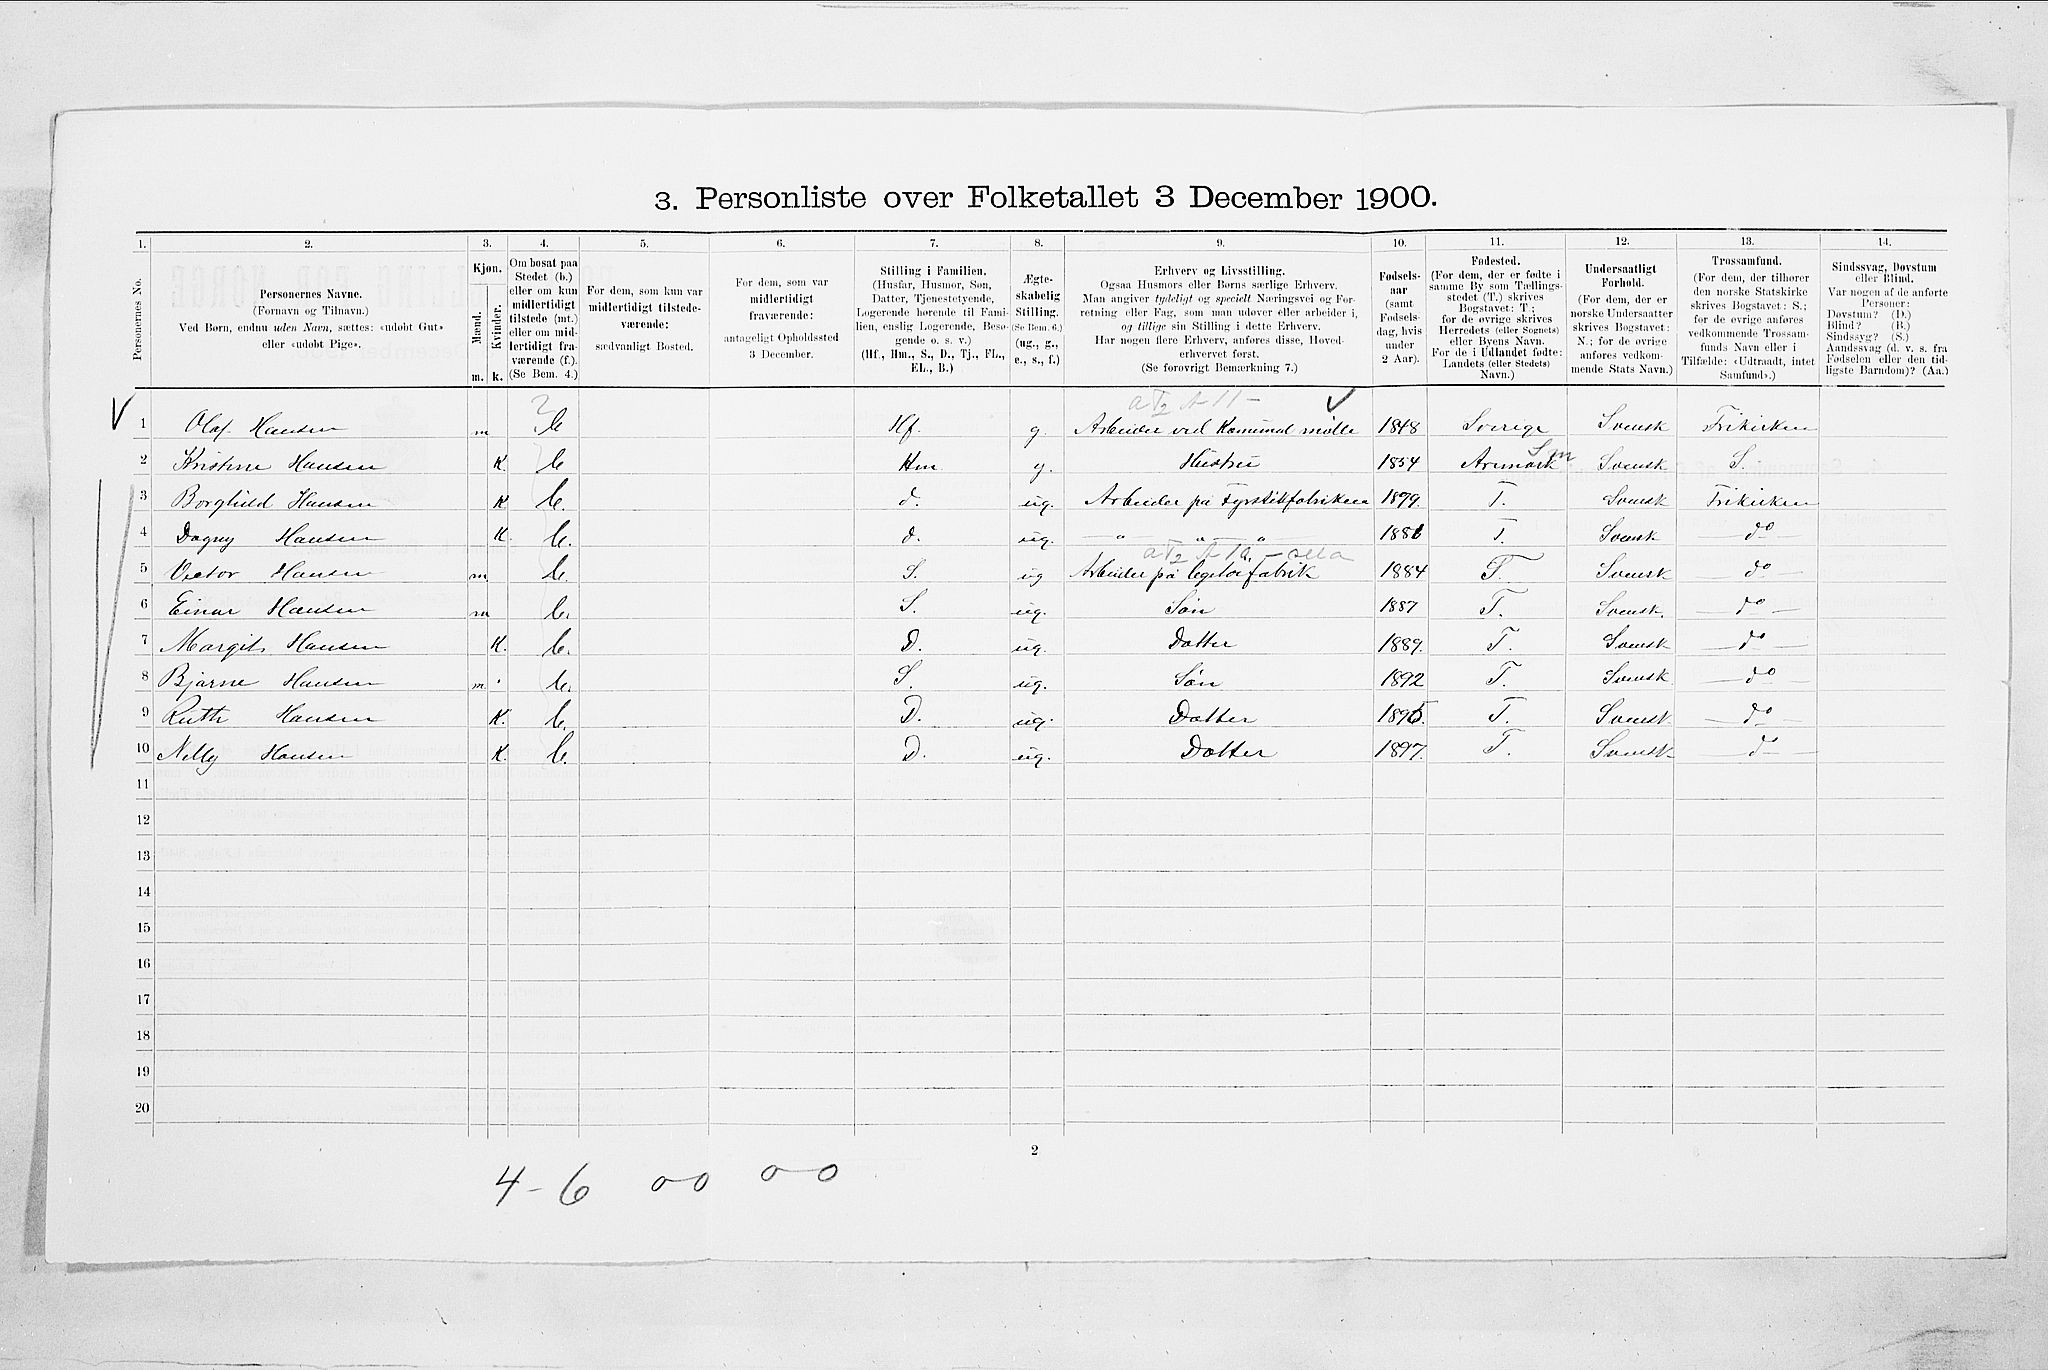 3. Personliste over Folketallet 3 December 1900.
1. 2. 3. 4. 5. 6. 7. 8. 9. 10. 11. 12. 13. 14.
Personernes No.
Personernes Navne.
(Fornavn og Tilnavn.)
Ved Børn, endnu uden Navn, sættes: «udøbt Gut»
eller «udøbt Pige».
Kjøn.
Mænd.
Kvinder.
m. k.
Om bosat paa
Stedet (b.)
eller om kun
midlertidigt
tilstede (mt.)
eller om mid-
lertidigt fra-
værende (f.).
(Se Bem. 4.)
For dem, som kun var
midlertidigt tilstede-
værende:
sædvanligt Bosted.
For dem, som var
midlertidigt
fraværende:
antageligt Opholdssted
3 December.
Stilling i Familien.
(Husfar, Husmor, Søn,
Datter, Tjenestetyende,
Logerende hørende til Fami-
lien, enslig Logerende, Besø-
gende o. s. v.)
(Hf., Hm., S., D., Tj., FL.,
EL., B.)
Ægte-
skabelig
Stilling.
(Se Bem. 6.)
(ug., g.,
e., s., f.)
Erhverv og Livsstilling.
Ogsaa Husmors eller Børns særlige Erhverv.
Man angiver tydeligt og specielt Næringsvei og For-
retning eller Fag, som man udøver eller arbeider i,
og tillige sin Stilling i dette Erhverv.
Har nogen flere Erhverv, anføres disse, Hoved-
erhvervet først.
(Se forøvrigt Bemærkning 7.)
Fødsels-
aar
(samt
Fødsels-
dag, hvis
under
2 Aar).
Fødested.
(For dem, der er fødte i
samme By som Tællings-
stedet (T.) skrives
Bogstavet: T.;
for de øvrige skrives
Herredets (eller Sognets)
eller Byens Navn.
For de i Udlandet fødte:
Landets (eller Stedets)
Navn.)
Undersaatligt
Forhold.
(For dem, der er
norske Undersaatter
skrives Bogstavet:
N.; for de øvrige
anføres vedkom-
mende Stats Navn.)
Trossamfund.
(For dem, der tilhører
den norske Statskirke
skrives Bogstavet: S.;
for de øvrige anføres
vedkommende Trossam-
funds Navn eller i
Tilfælde: «Udtraadt, intet
Samfund».)
Sindssvag, Døvstum
eller Blind.
Var nogen af de anførte
Personer:
Døvstum? (D.)
Blind? (B.)
Sindssyg? (S.)
Aandssvag (d. v. s. fra
Fødselen eller den tid-
ligste Barndom)? (Aa.)
1 Olaf Hansen m b Hf. g. Arbeider ved Kommunal mølle 1848 Sverige Svensk Frikirken
2 Kristine Hansen K. b. Hm g. Hustru 1854 Aremark Svensk S.
3 Borghild Hansen K b. d. ug. Arbeider på Fyrstikfabriken 1879. T. Svensk Frikirken
4 Dagny Hansen K. b. d. ug. — " — " — " — 1881 T. Svensk — do —
5 Victor Hansen m b. S. ug Arbeider på legetøifabrik 1884 T. Svensk — do —
6 Einar Hansen m b. S. ug. Søn 1887 T. Svensk. — do —
7 Margit Hansen K. b. D. ug. Datter 1889. T. Svensk — do —
8 Bjarne Hansen m. b. S. ug. Søn 1892 T. Svensk — do —
9 Ruth Hansen K. b. D. ug. Datter 1895. T. Svensk — do —
10 Nelly Hansen K. b. D. ug. Datter 1897. T. Svensk — do —
11
12
13
14
15
16
17
18
19
20
2
4 - 6 0-0 0-0